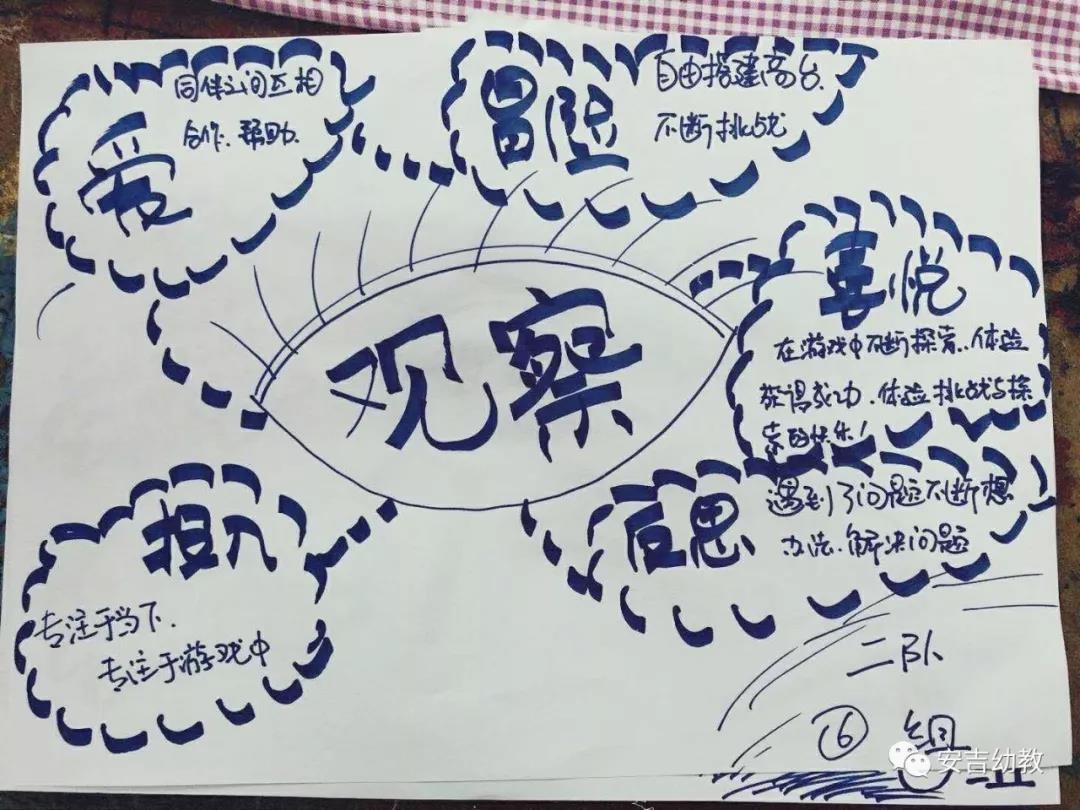 爱
同伴之间互相
合作、帮助、
冒险
自由搭建高台、
不断挑战
喜悦
在游戏中不断探索、体验
获得成功、体验挑战与探
索的快乐！
观察
投入
专注于当下、
专注于游戏中
反思
遇到了问题不断想
办法、解决问题
二队
⑥组
安吉幼教